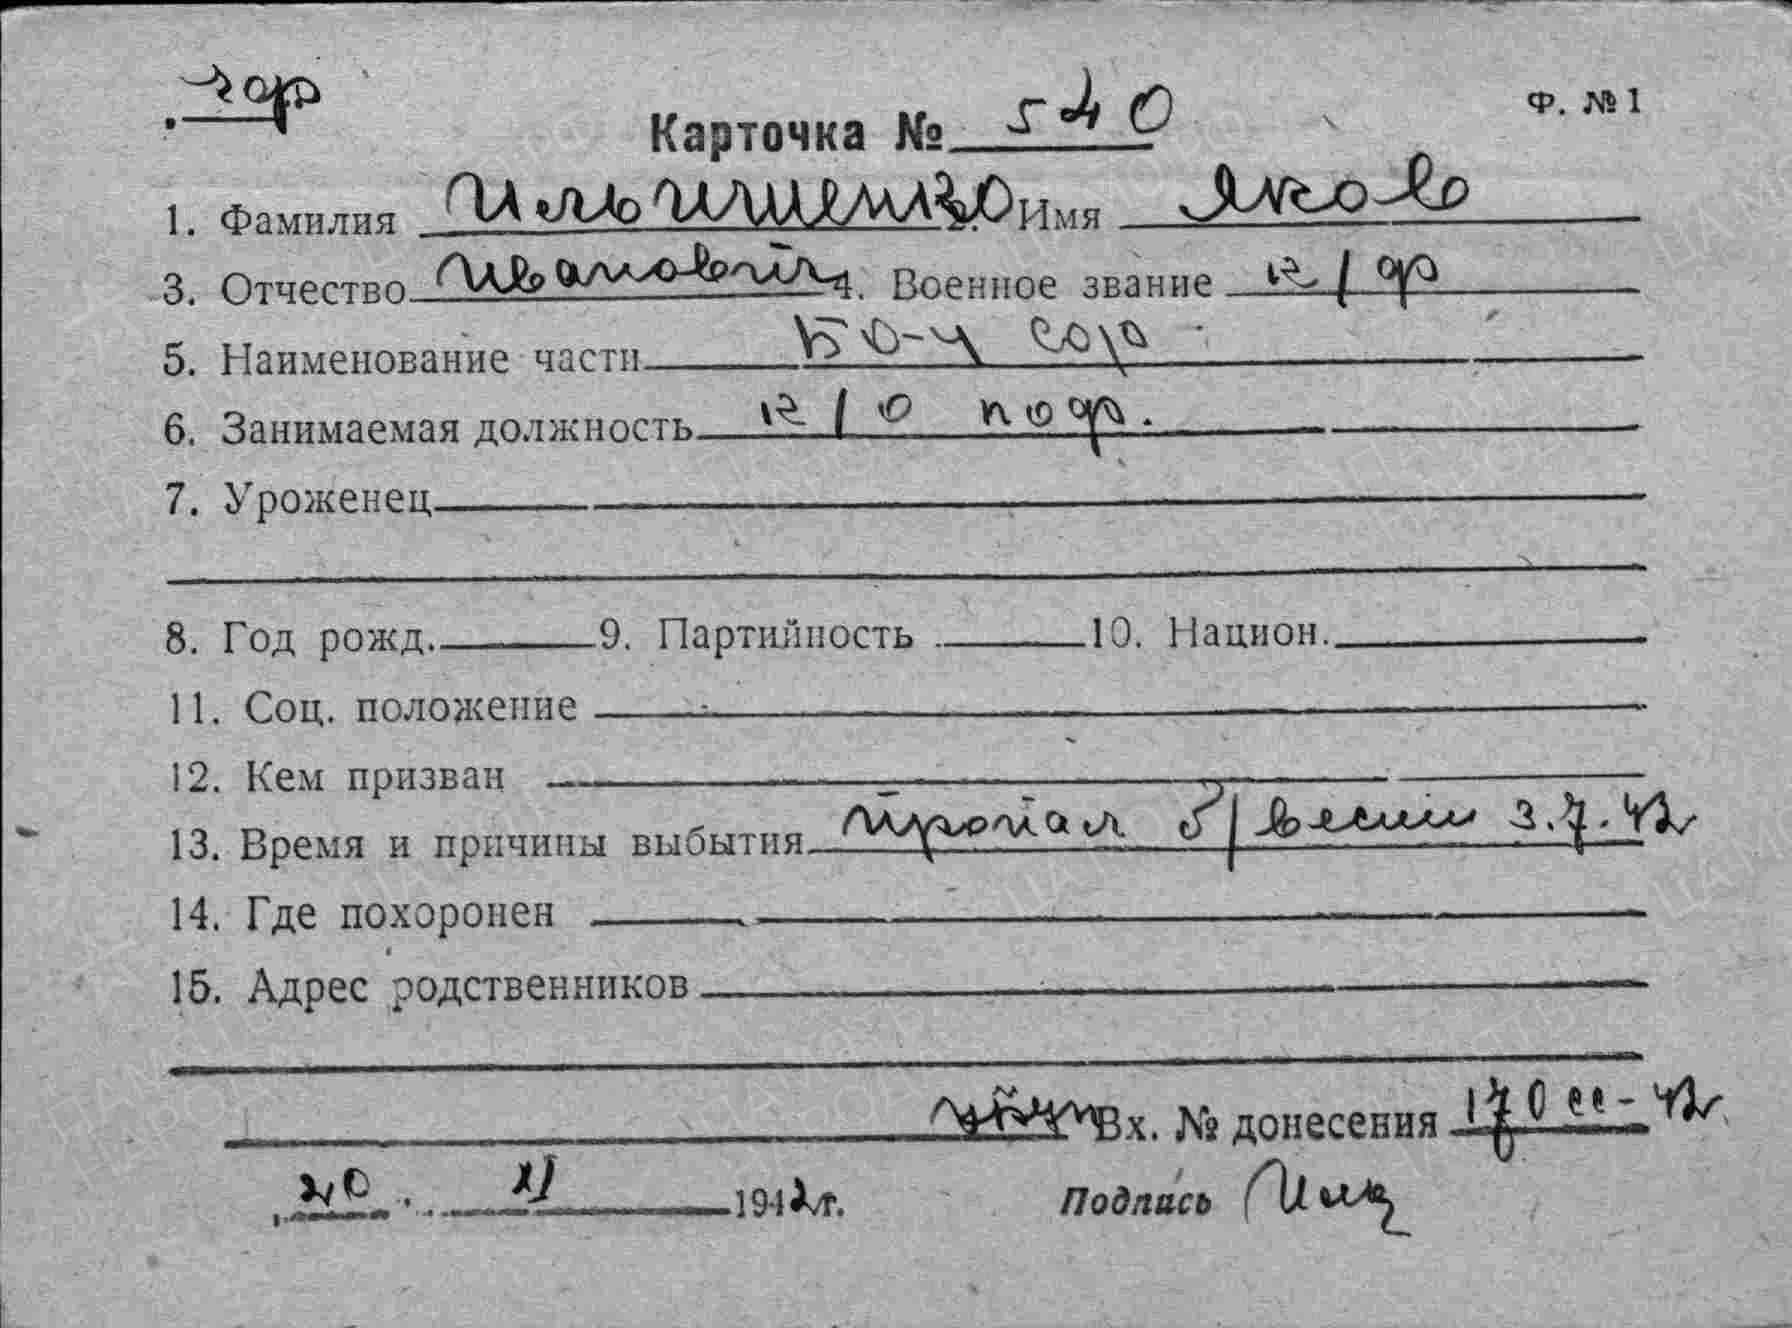 Ф. №1
Карточка № 540
1. Фамилия Ильишенко 2. Имя Яков
3. Отчество Иванович 4. Военное звание к/ф
5. Наименование части
6. Занимаемая должность
7. Уроженец
8. Год рожд. 9. Партийность 10. Национ.
11. Соц. положение
12. Кем призван
13. Время и причины выбытия Пропал б/вести 3.7.42
14. Где похоронен
15. Адрес родственников
Вх. № донесения 170 42
20. XI 1942 г. Подпись